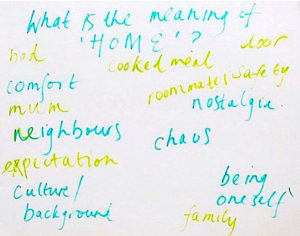 What is the meaning of
'HOME'?
door
bed
cooked meal
comfort
roommates
safety
mum
nostalgia
neighbours
chaos
expectation
culture/
background
being
oneself
family